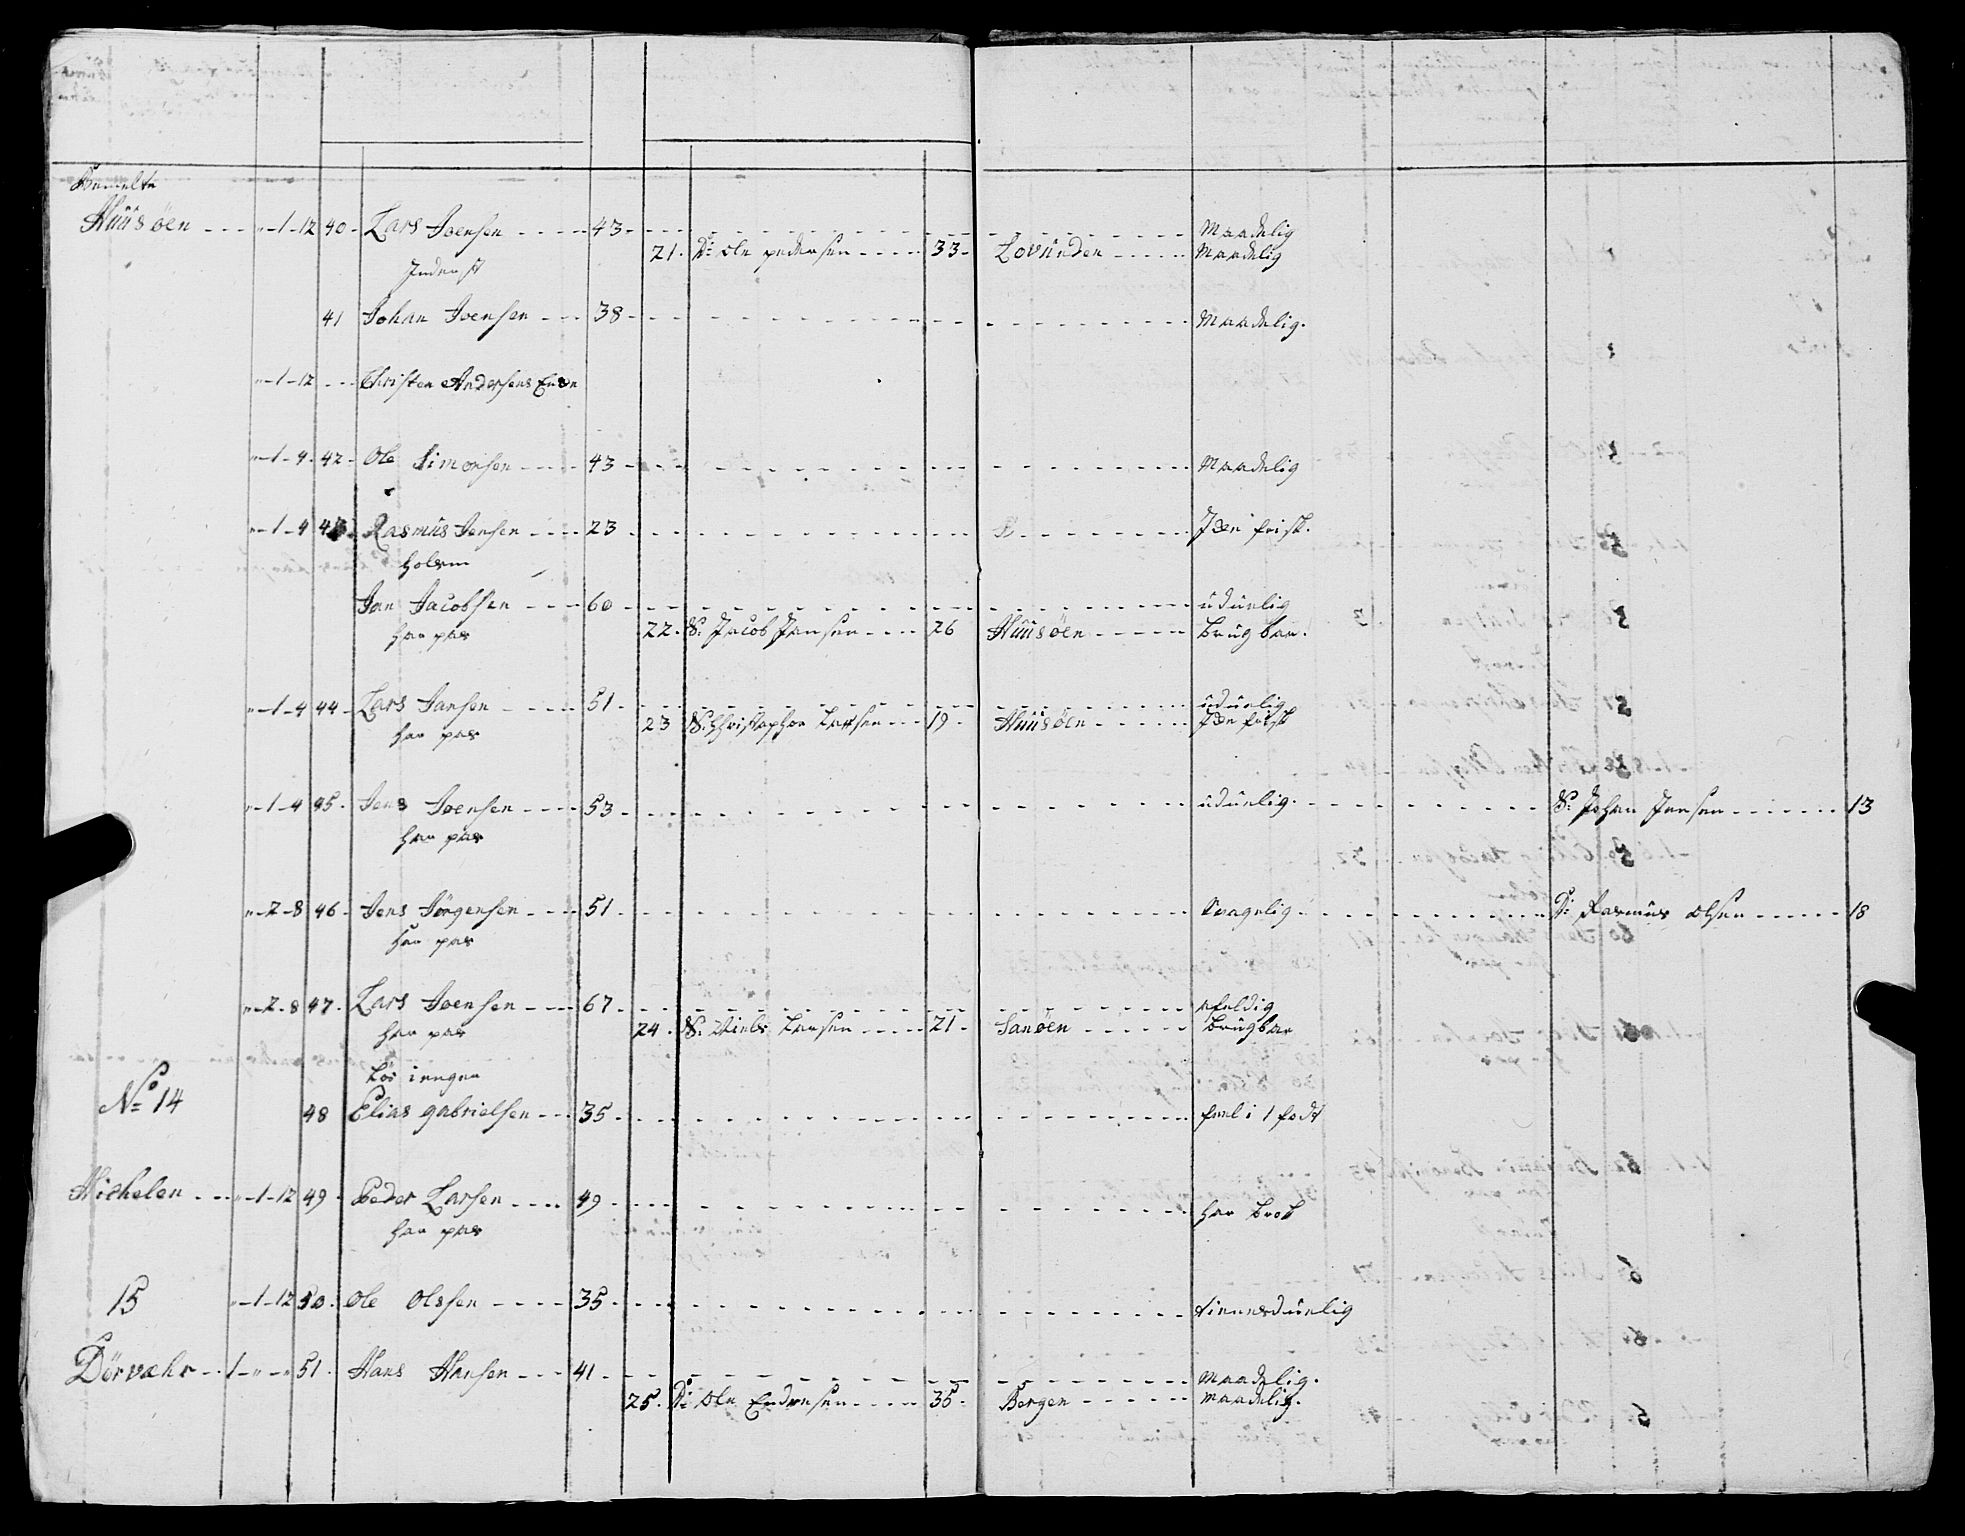 Bemelte
Huusøen - - - "-1-12 40- Lars Joensen - - - - - 43 - - - - - Maadelig
21. Dº Ole pedersen - - - - 33 - Lovunden - - - - - Maadelig
Inderst
41 Johan Joensen - - - 38 - - - - - Maadelig.
"-1-12 - - - Christen Andersens Enke
"-1-4. 42- Ole Simonsen - - - - 43 - - - - - Maadelig
"-1-4 43. Rasmus Jensen - - - - 23 - - - - - Jden frisk.
Holem
Jan Jacobsen - - - - 60 - - - - - uduelig
har pas 22. S: Jacob Jansen - - - - 26 Huusøen - - - - - brugbar.
"-1-4 44- Lars Jansen - - - - - 51 - - - - - uduelig
23 S: Christopher Larsen - - - 19 - Huusøen - - - - - Jden frisk
har pas
"-1-4 45. Jens Joensen - - - - 53 - - - - - uduelig. - - - - - S: Johan Jensen - - - - - - 13
har pas
"-2-8 46- Jens Jørgensen - - - - 51 - - - - - Svagelig - - - - - Dº Rasmus Olsen - - - - - 18
har pas
"-2-8 47. Lars Joensen - - - - 67 - - - - - afeldig
har pas 24. S: Niels Larsen - - - - - 21 - Sanøen - - - - - - brugbar
Løs iengen
Nº 14
48 Elias gabrielsen - - - 35 - - - - - feel i 1 fodt
Hichelen - - - "-1-12 49 - Peder Larsen - - - - 49 - - - - - har brok
har pas
15 "-1-12 50. Ole Olssen - - - - - 35 - - - - - tienesduelig
Dörvæhr - - 1-"-" 51. Hans Hansen - - - 41 - - - - - maadelig.
25. Dº Ole Endresen - - - - - 35 - Bergen - - - - - maadelig.